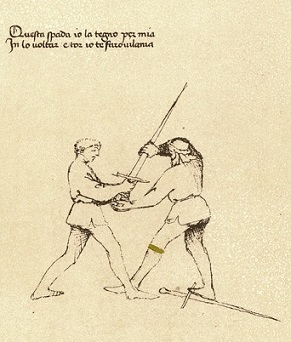 Questa spada io la tegno per mia
In lo voltar e tor io te farò vilania